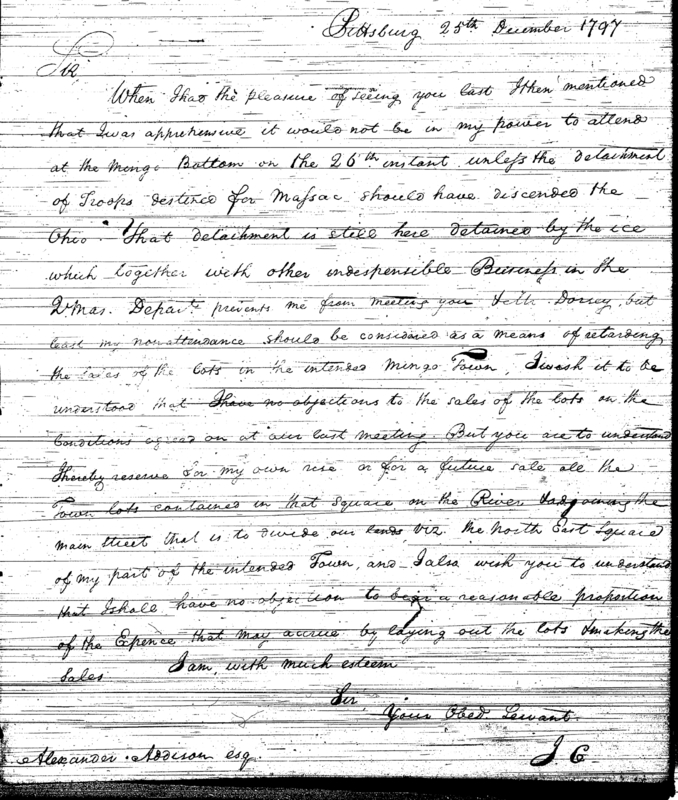 Pittsburg 25th December 1797
Sir
When I had the pleasure of seeing you last I then mentioned
that I was apprehensive it would not be in my power to attend
at the Mingo Bottom on the 26th instant unless the detachment
of Troops destined for Massac should have discended the
Ohio. That detachment is still here detained by the ice
which together with other indespensible Business in the
QrMas. Depart prevents me from meeting you & Mr. Dorsey, but
least my nonattendance should be considered as a means of retarding
the sales of the lots in the intended Mingo Town, I wish it to be
understood that I have no objections to the sales of the lots on the
Conditions agreed on at our last meeting. But you are to understand
I hereby reserve for my own use or for a future sale all the
Town lots contained in that Square on the River & adjoining the
main street that is to divide our lands, viz. the North East Square
of my part of the intended Town, and I also wish you to understand
that I shall have no objection to bear a reasonable proportion
of the Epence that may accrue by laying out the lots & making the
Sales I am, with much esteem
Sir
Your Obed Servant.
Alexander Addison esq. J C.